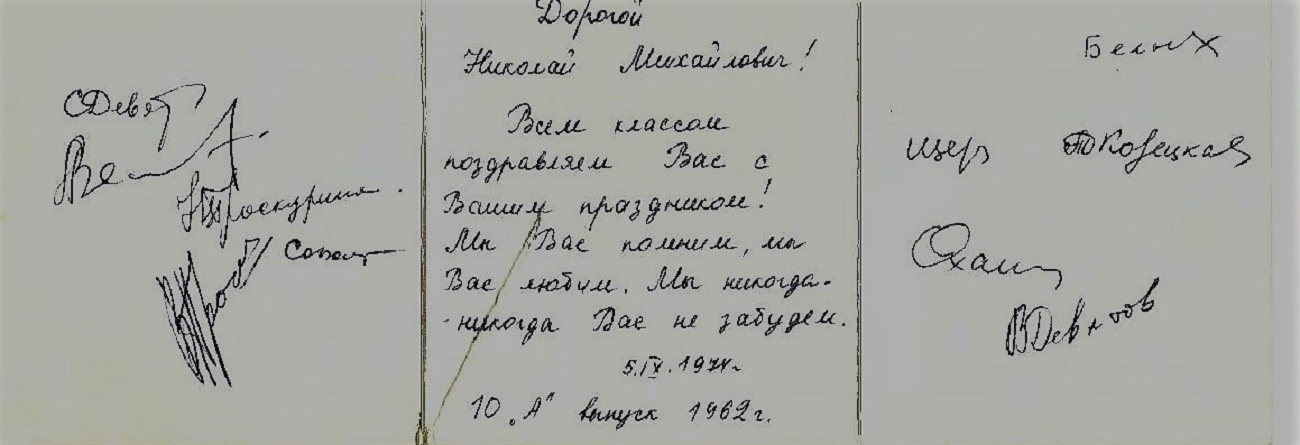 Дорогой
Николай Михайлович!
Всем классом
поздравляем Вас с
Вашим праздником!
Мы Вас помним, мы
Вас любим. Мы никогда-
-никогда Вас не забудем.
5.IX.1974г
10 „А" выпуск 1962г.
СДевят
НПроскурина.
Белых
Щер
ТКорецкая
Охап
ВДевятов